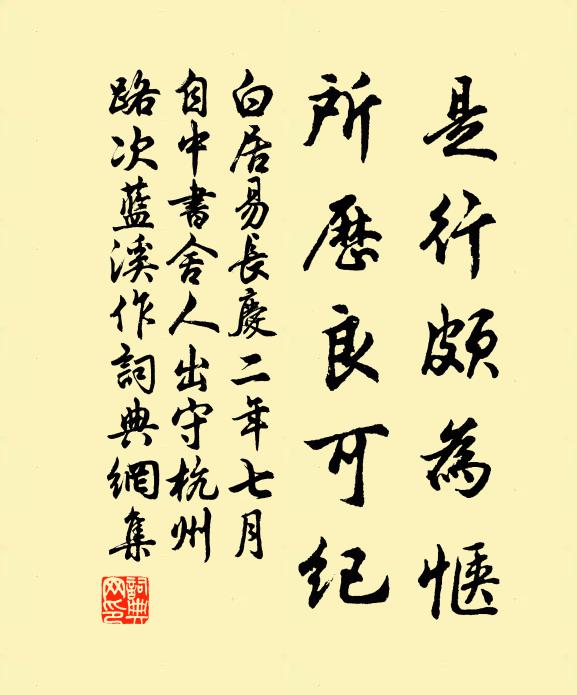 是行頗為愜
所歷良可紀
白居易長慶二年七月
自中書舍人出守杭州
路次藍溪作詞典網集
詞典網印